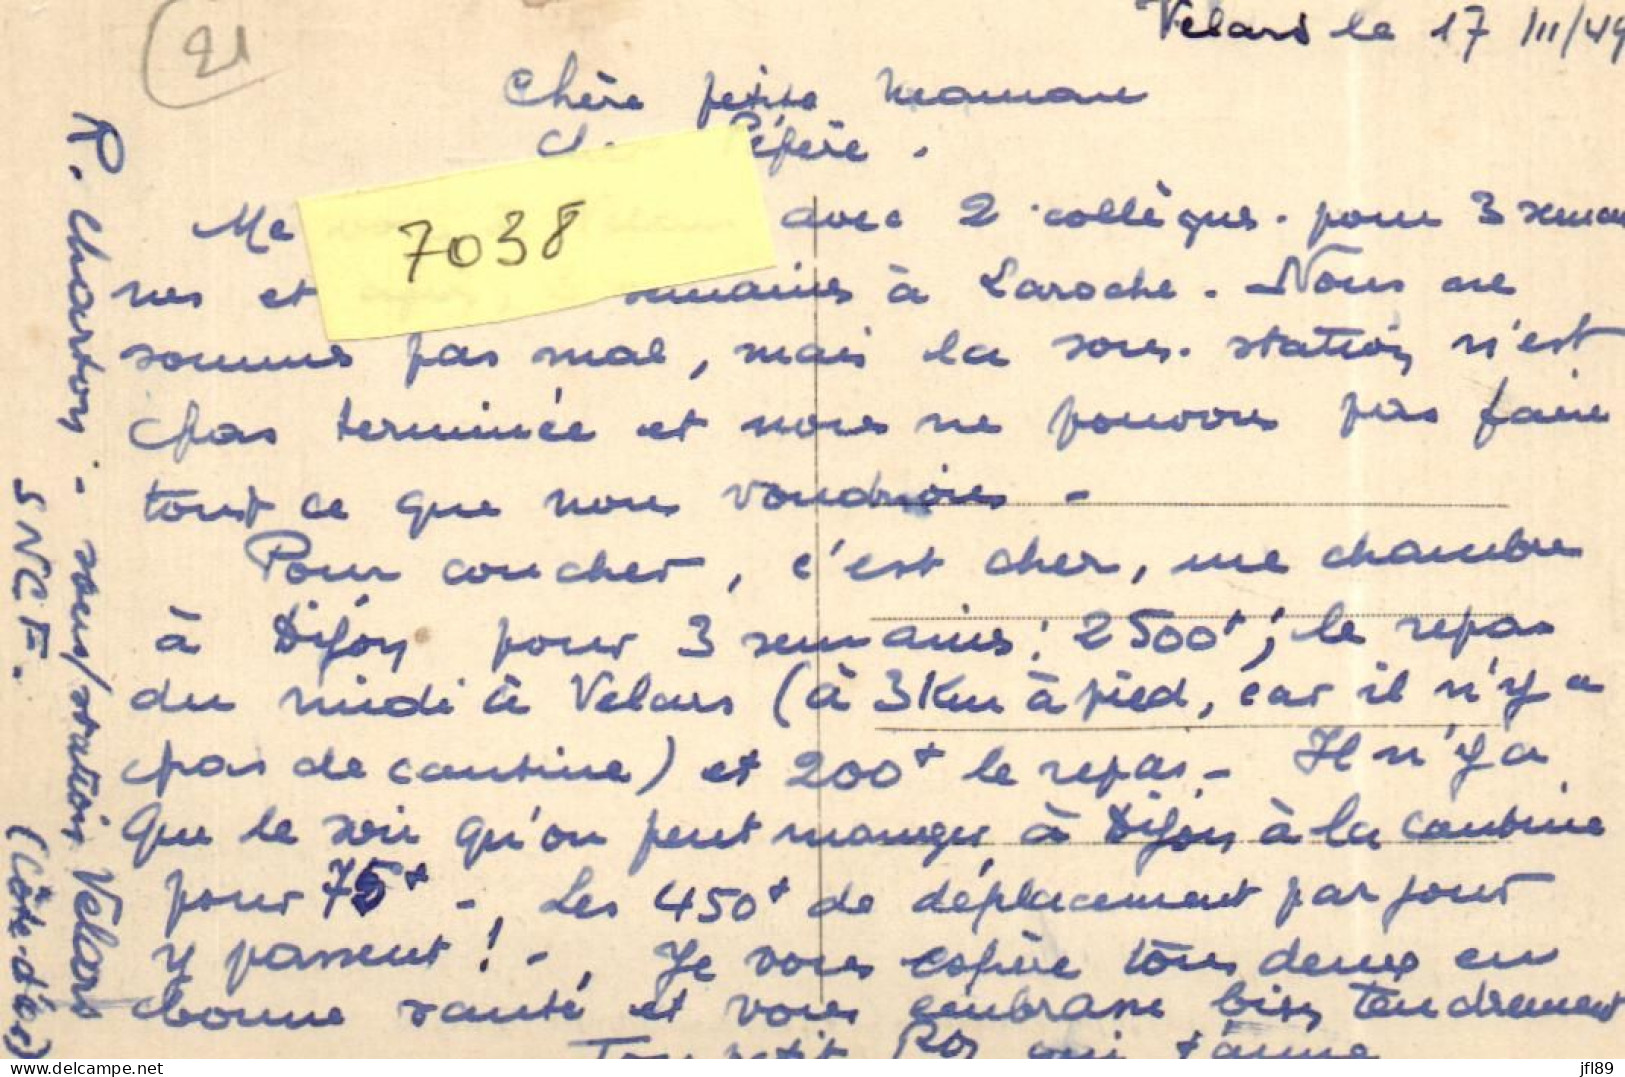 21
Velars le 17/III/49
Chère petite Maman
Pépère.
7038
Me avec 2 collègues. pour 3 semai
nes et semaines à Laroche. Nous ne
sommes pas mal, mais la sous-station n'est
pas terminée et nous ne pouvons pas faire
tout ce que nous voudrions -
Pour coucher, c'est cher, une chambre
à Dijon pour 3 semaines : 2500f ; le repas
du midi à Velars (à 3Km à pied, car il n'y a
pas de cantine) et 200f le repas - Il n'y a
que le soir qu'on peut manger à Dijon à la cantine
pour 75f - Les 450f de déplacement par jour
y passent ! - Je vous espère tous deux en
bonne santé et vous embrasse bien tendrement
Ton petit qui t'aime
R. Charton - sous/station Velars
SNCF. (Côte-d'Or)
www.delcampe.net
jfl89